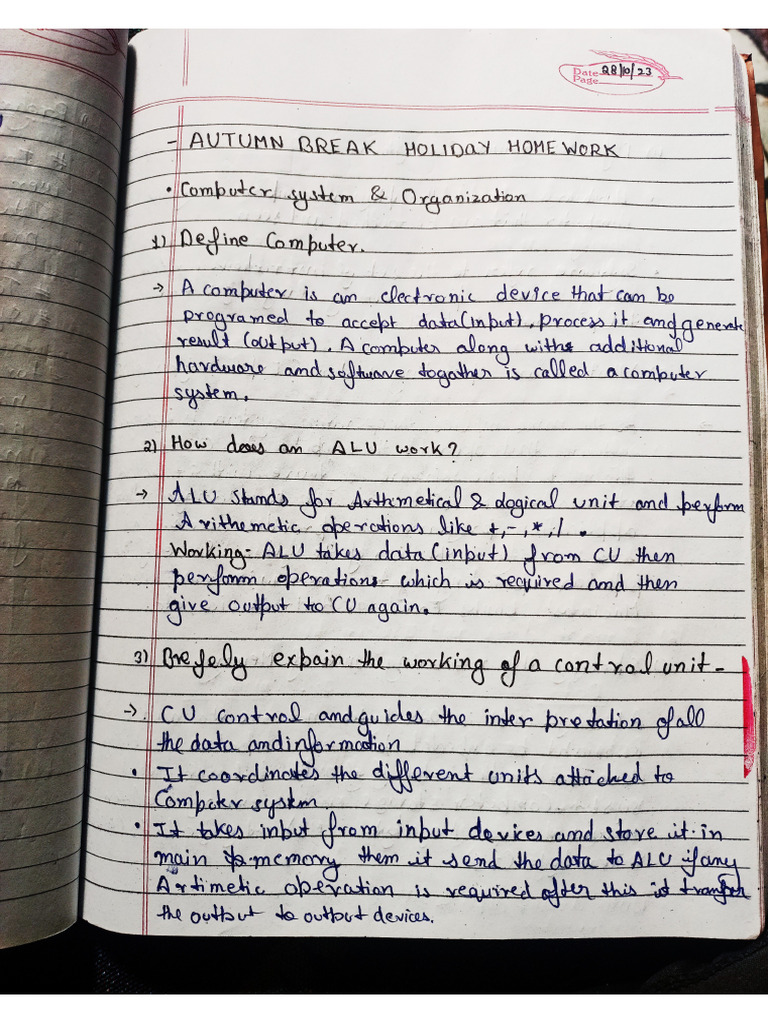 Date 28/10/23
Page
- AUTUMN BREAK HOLIDAY HOME WORK
• Computer system & Organization
1) Define Computer.
→ A computer is an electronic device that can be
programed to accept data (input), process it and generate
result (output). A computer along with additional
hardware and software togather is called a computer
system.
2) How does an ALU work?
→ ALU stands for Arthmetical & Logical unit and perform
Arithemetic operations like +,-,*,/ .
Working- ALU takes data (input) from CU then
perform operations which is required and then
give output to CU again.
3) Brefely expain the working of a control unit -
→ CU control and guides the inter pretation of all
the data and information
• It coordinates the different units attached to
Computer system.
• It takes input from input devices and store it in
main memory them it send the data to ALU if any
Artimetic operation is required after this it transfer
the output to output devices.